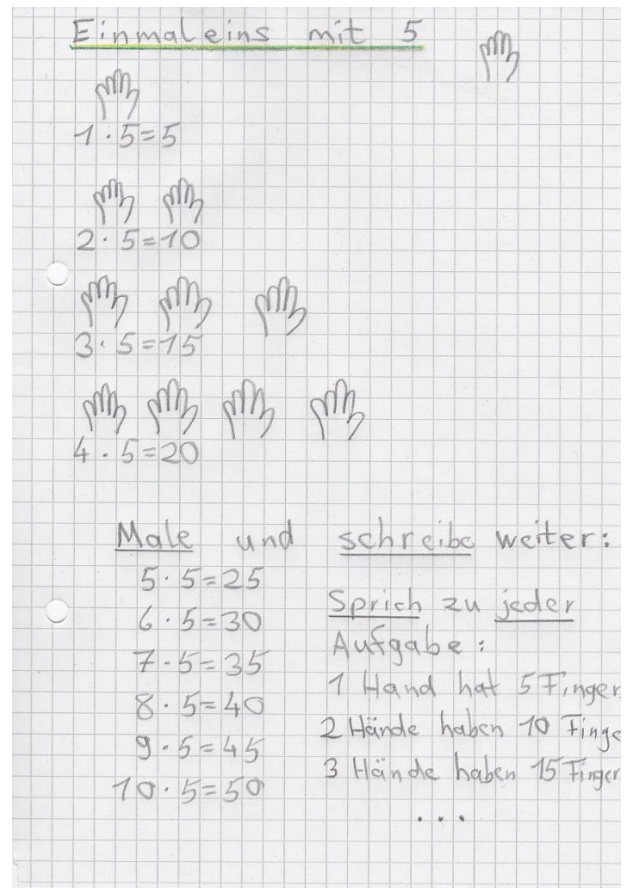 Einmaleins mit 5
1 · 5 = 5
2 · 5 = 10
3 · 5 = 15
4 · 5 = 20
Male und schreibe weiter:
5 · 5 = 25
6 · 5 = 30
7 · 5 = 35
8 · 5 = 40
9 · 5 = 45
10 · 5 = 50
Sprich zu jeder
Aufgabe:
1 Hand hat 5 Finger
2 Hände haben 10 Finge
3 Hände haben 15 Finger
...